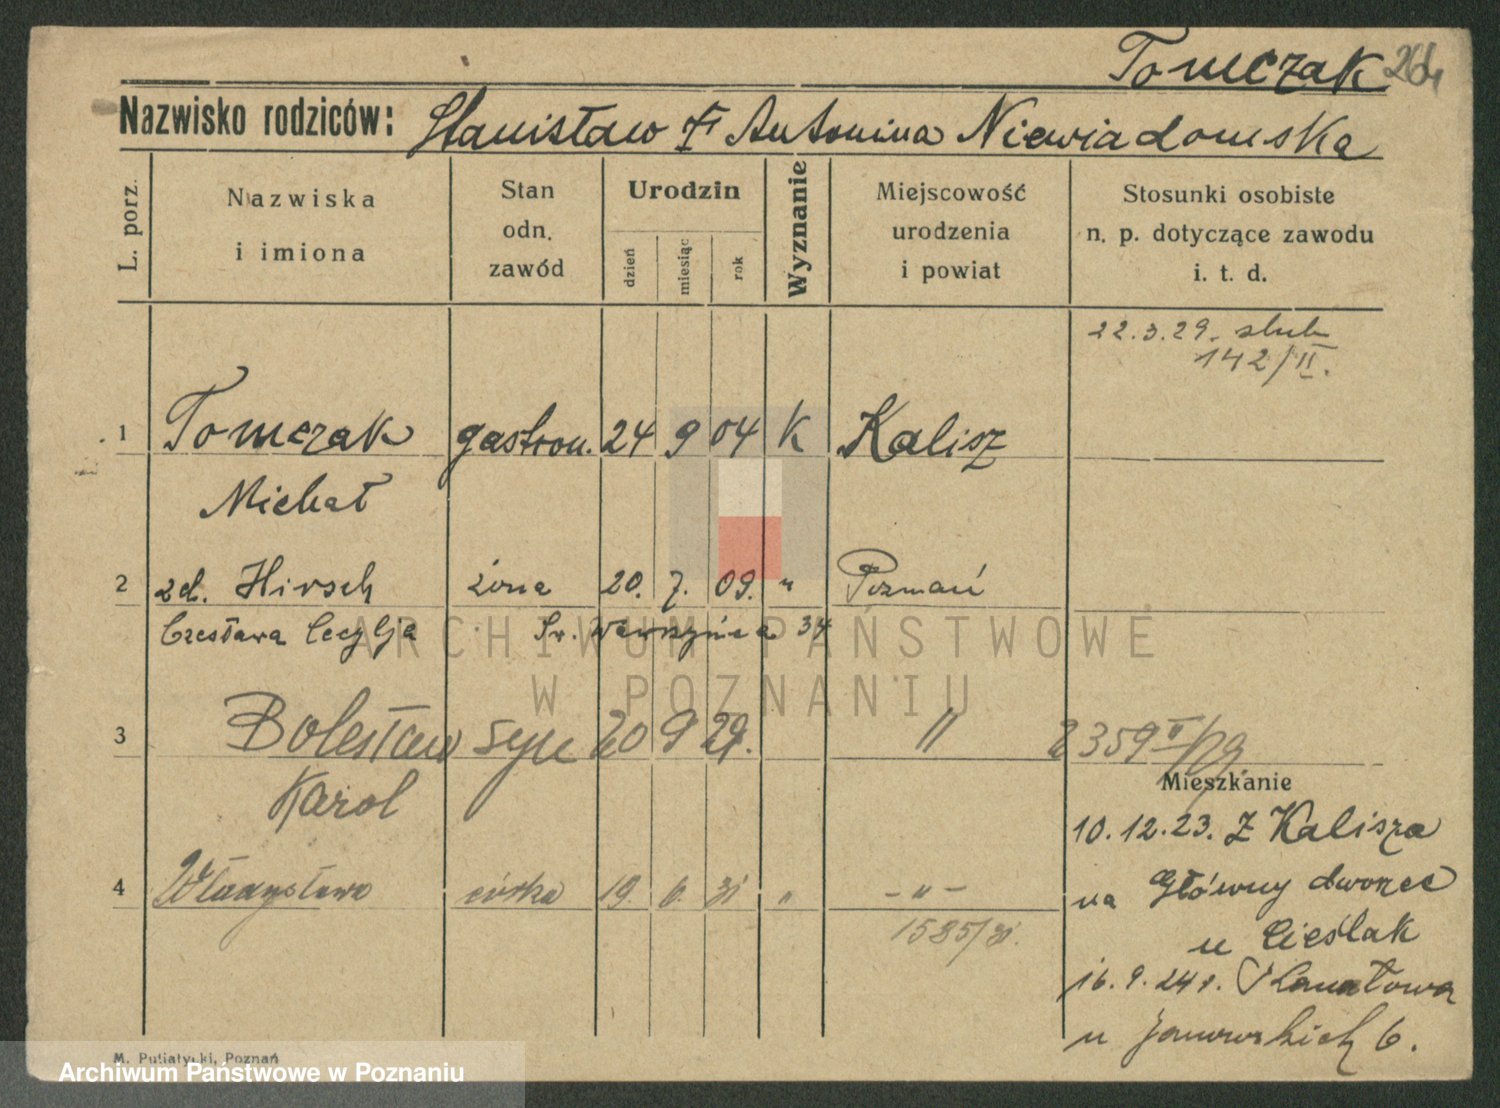 Tomczak 264
Nazwisko rodziców: Stanisław i Antonina Niewiadomska
L. porz.
Nazwiska
i imiona
Stan
odn.
zawód
Urodzin
dzień
miesiąc
rok
Wyznanie
Miejscowość
urodzenia
i powiat
Stosunki osobiste
n. p. dotyczące zawodu
i. t. d.
22.3.29. ślub
142/II.
1 Tomczak gastron. 24 9 04 K Kalisz
Michał
2 zd. Hirsch żona 20. 7. 09. " Poznań
Czesława Cecylja Św. Wawrzyńca 34
ARCHIWUM PAŃSTWOWE
W POZNANIU
3 Bolesław syn 20 9 29. " 2359 II/29
Karol
Mieszkanie
10.12.23. z Kalisza
4 Władysława córka 19. 6. 31 " - " -
na Główny dworzec
1585/31.
u Cieślak
16.9.24r.
u 6.
M. Putiatycki, Poznań
Archiwum Państwowe w Poznaniu